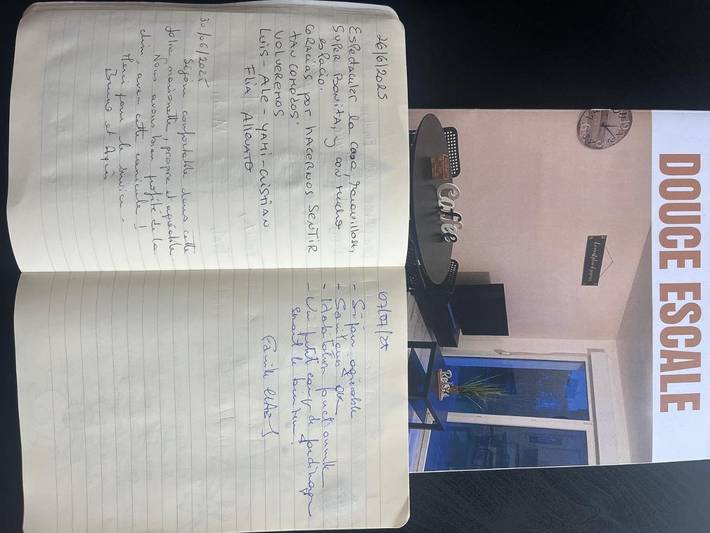 26/6/2025
Espectacular la casa, Maravillosa,
SUPER BONITA, y CON MUCHO
ESPACIO.
GRACIAS POR HACERNOS SENTIR
TAN COMODOS.
VOLVEREMOS
LUIS - ALE - YAMI - CRISTIAN
Flia
30/06/2025
Séjour confortable dans cette
jolie maisonnette, propre et agréable
Nous avons bien profité de la
clim avec cette canicule !
Merci pour le service -
Bruno et
07/07/25
- Séjour agréable
- Sanitaires OK
- Habitation fonctionnelle
- Un petit coup de jardinage
serait le bienvenu.
Famille
DOUCE ESCALE
Coffee